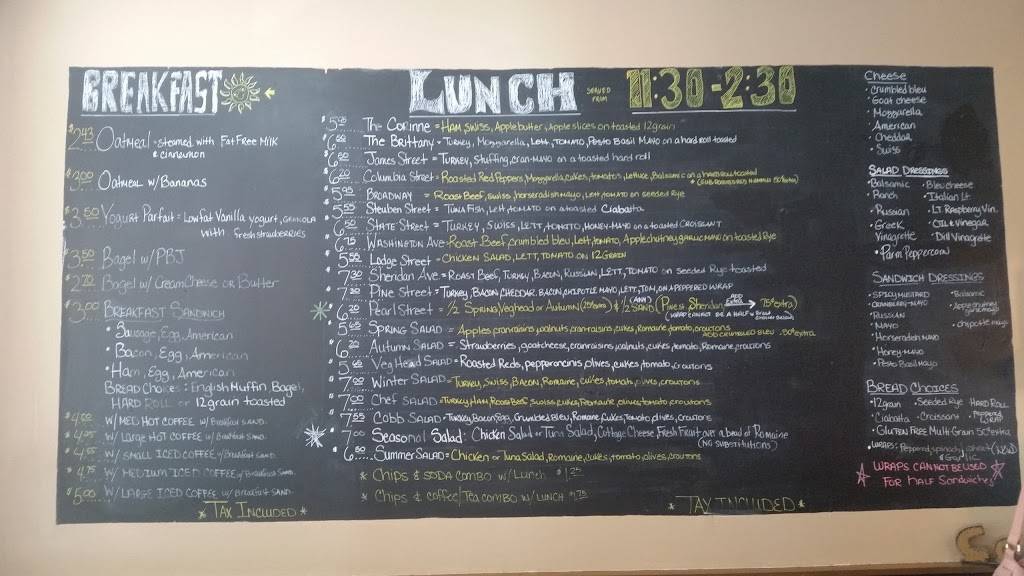 BREAKFAST
$2.43 Oatmeal - steamed with Fat Free Milk
& cinnamon
$3.00 Oatmeal w/Bananas
$3.50 Yogurt Parfait = Lowfat Vanilla yogurt, GRANOLA
with fresh strawberries
$3.50 Bagel w/PBJ
$2.70 Bagel w/ Cream Cheese or Butter
$3.00 BREAKFAST SANDWICH
• Sausage, Egg, American
• Bacon, Egg, American
• Ham, Egg, American
BREAD Choices: English Muffin Bagel,
HARD ROLL or 12grain toasted
$4.00 W/ MED HOT COFFEE w/ Breakfast SAND.
W/ Large HOT COFFEE w/ Breakfast SAND.
W/ SMALL ICED COFFEE w/ Breakfast SAND.
W/ MEDIUM ICED COFFEE w/ Breakfast SAND
$5.00 W/ LARGE ICED COFFEE w/ Breakfast SAND.
* TAX INCLUDED *
LUNCH SERVED FROM 11:30-2:30
The Corinne = HAM, SWISS, Apple butter, Apple slices on toasted 12grain
The Brittany = Turkey, Mozzarella, Lett, TOMATO, Pesto Basil Mayo on a hard roll toasted
James Street = TURKEY, Stuffing, cran-mayo on a toasted hard roll
Columbia Street = Roasted Red Peppers, Mozzarella, Cukes, tomatoes, Lettuce, Balsamic on a hard roll toasted
BROADWAY = ROAST BEEF, Swiss, horseradish mayo, Lett, tomato on seeded Rye
Steuben Street = TUNA Fish, Lett, tomato on a toasted Ciabatta
STATE STREET = TURKEY, SWISS, LETT, TOMATO, HONEY-MAYO on a toasted CROISSANT
WASHINGTON AVE = Roast Beef, crumbled bleu, Lett, TOMATO, Apple chutney, garlic mayo on toasted Rye
Lodge Street = CHICKEN SALAD, LETT, TOMATO on 12GRAIN
Sheridan Ave = ROAST BEEF, TURKEY, BACON, RUSSIAN, LETT, TOMATO on seeded Rye toasted
PINE STREET = TURKEY, BACON, CHEDDAR, BACON, CHIPOTLE MAYO, LETT, TOM, ON A PEPPERED WRAP
Pearl Street = 1/2 Spring, Veghead or Autumn & 1/2 SAND (ANY) (Pine or Sheridan ADD EXTRA → 75¢ extra)
SPRING SALAD = Apples, cranraisins, walnuts, cukes, Romaine, tomato, croutons
ADD CRUMBLED BLEU .50¢ extra
AUTUMN SALAD = Strawberries, goat cheese, cranraisins, walnuts, cukes, tomato, Romaine, croutons
Veg Head SALAD = Roasted Reds, pepperoncinis, olives, cukes, tomato, croutons
7.00 Winter SALAD = TURKEY, SWISS, BACON, Romaine, cukes, tomato, olives, croutons
7.00 Chef SALAD = TURKEY, HAM, ROAST BEEF, Swiss, cukes, Romaine, olives, tomato, croutons
Cobb SALAD = Turkey, Bacon, Crumbled Bleu, Romaine, Cukes, Tomato, olives, croutons
7.00 Seasonal Salad: Chicken Salad or Tuna Salad, Cottage Cheese, Fresh Fruit over a bed of Romaine
(NO SUBSTITUTIONS)
Summer SALAD = Chicken or Tuna Salad, Romaine, cukes, tomato, olives, croutons
* CHIPS & SODA COMBO w/ Lunch
* CHIPS & coffee/Tea combo w/ LUNCH
* TAX INCLUDED *
Cheese
• Crumbled bleu
• Goat cheese
• Mozzarella
• American
• Cheddar
• Swiss
SALAD DRESSINGS
• Balsamic
• Bleu cheese
• Ranch
• Italian Lt
• Russian
• LT. Raspberry Vin.
• Greek Vinagrette
• OIL & Vinegar
• Dill Vinagrette
• Parm Peppercorn
SANDWICH DRESSINGS
• SPICY MUSTARD
• Balsamic
• CRANBERRY-MAYO
• Apple chutney
• RUSSIAN
• MAYO
• chipotle mayo
• Horseradish mayo
• Honey-Mayo
• Pesto Basil Mayo
BREAD CHOICES
• 12grain
• Seeded Rye
HARD ROLL
• Ciabatta
• Croissant
• Peppered WRAP
• GLUTEN FREE Multi Grain 50¢ extra
• WRAPS: Peppered, spinach, wheat (NEW)
Garlic
WRAPS CANNOT BE USED
FOR Half Sandwiches